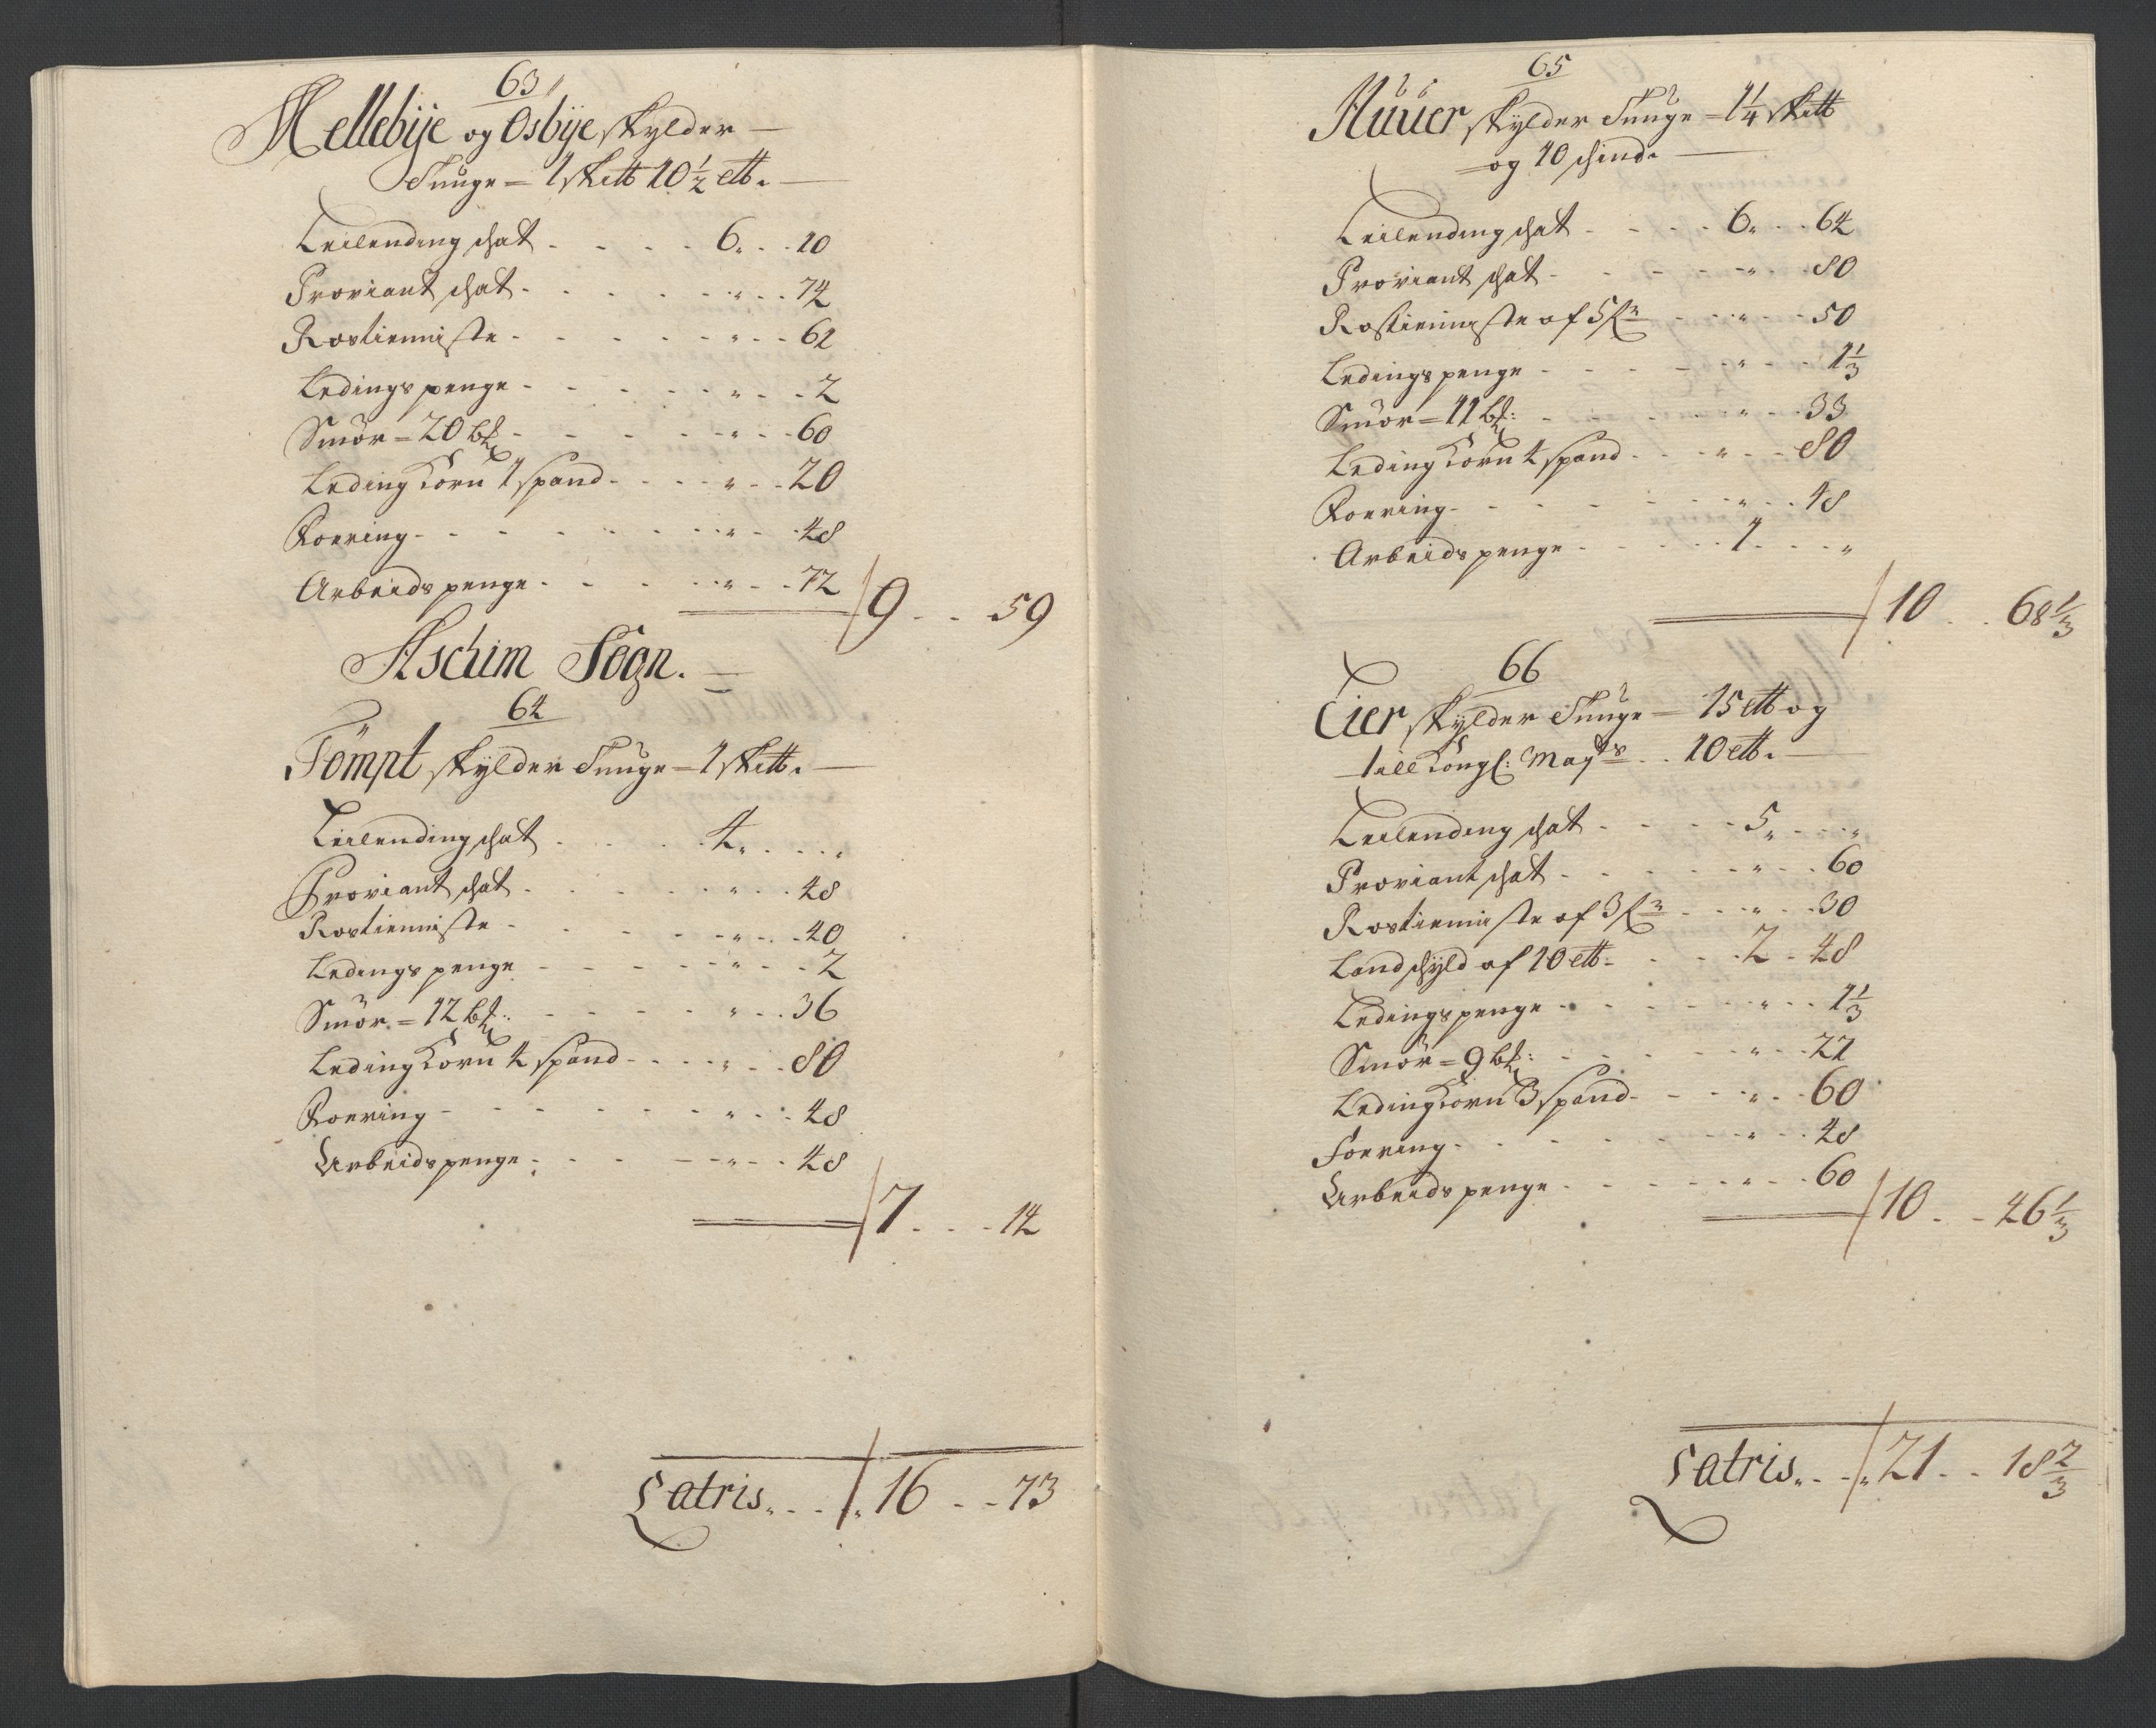 63
Mellebÿe og Osbÿe skylder —
Tunge = 1 Sk℔ 10½ l℔. —
Leilending schat . . . . 6 . . 10
Proviant schat . . . . . " . . 74
Rostienniste . . . . . " . . 61
Ledings penge . . . . . " . . 2
Smör = 20 b℔ . . . . . " . . 60
Leding Korn 1 spand . . . . " . . 20
Foering . . . . . . . " . . 48
Arbeids penge . . . . . " . . 72
9 . . 59
Aschim Sogn. —
64
Tömpt skylder Tunge = 1 Sk℔. —
Leilending schat . . . . 4 . . . "
Proviant schat . . . . . " . . 48
Rostienniste . . . . . " . . 40
Ledings penge . . . . . " . . 2
Smör = 12 b℔: . . . . . " . . 36
Leding Korn 4 spand . . . . " . . 80
Foering . . . . . . . " . . 48
Arbeids penge . . . . . " . . 48
7 . . . 14
Latris . . . 16 . . 73
65
Huuer skylder Tunge = 1¼ Sk℔
og 10 schind. —
Leilending schat . . . . 6 . . 64
Proviant schat . . . . . " . . 80
Rostienniste of 5 . . . " . . 50
Ledings penge . . . . . " . . 1⅓
Smör = 11 b℔: . . . . . " . . 33
Leding Korn 4 spand . . . " . . 80
Foering . . . . . . . " . . 48
Arbeids penge . . . . . 1 . . . "
10 . . 68⅓
66
Eier skylder Tunge = 15 l℔ og
till Kongl: Mayts . . 10 l℔. —
Leilending schat . . . . 5 . . . "
Proviant schat . . . . . " . . 60
Rostienniste of 3 . . . " . . 30
Landschyld af 10 l℔ . . . . 2 . 48
Ledings penge . . . . . " . . 1⅓
Smör = 9 b℔: . . . . . " . . 27
Leding Korn 3 spand . . . " . . 60
Foering . . . . . . . " . . 48
Arbeids penge . . . . . " . . 60
10 . . 46⅓
Latris . . . 21 . . 18⅔